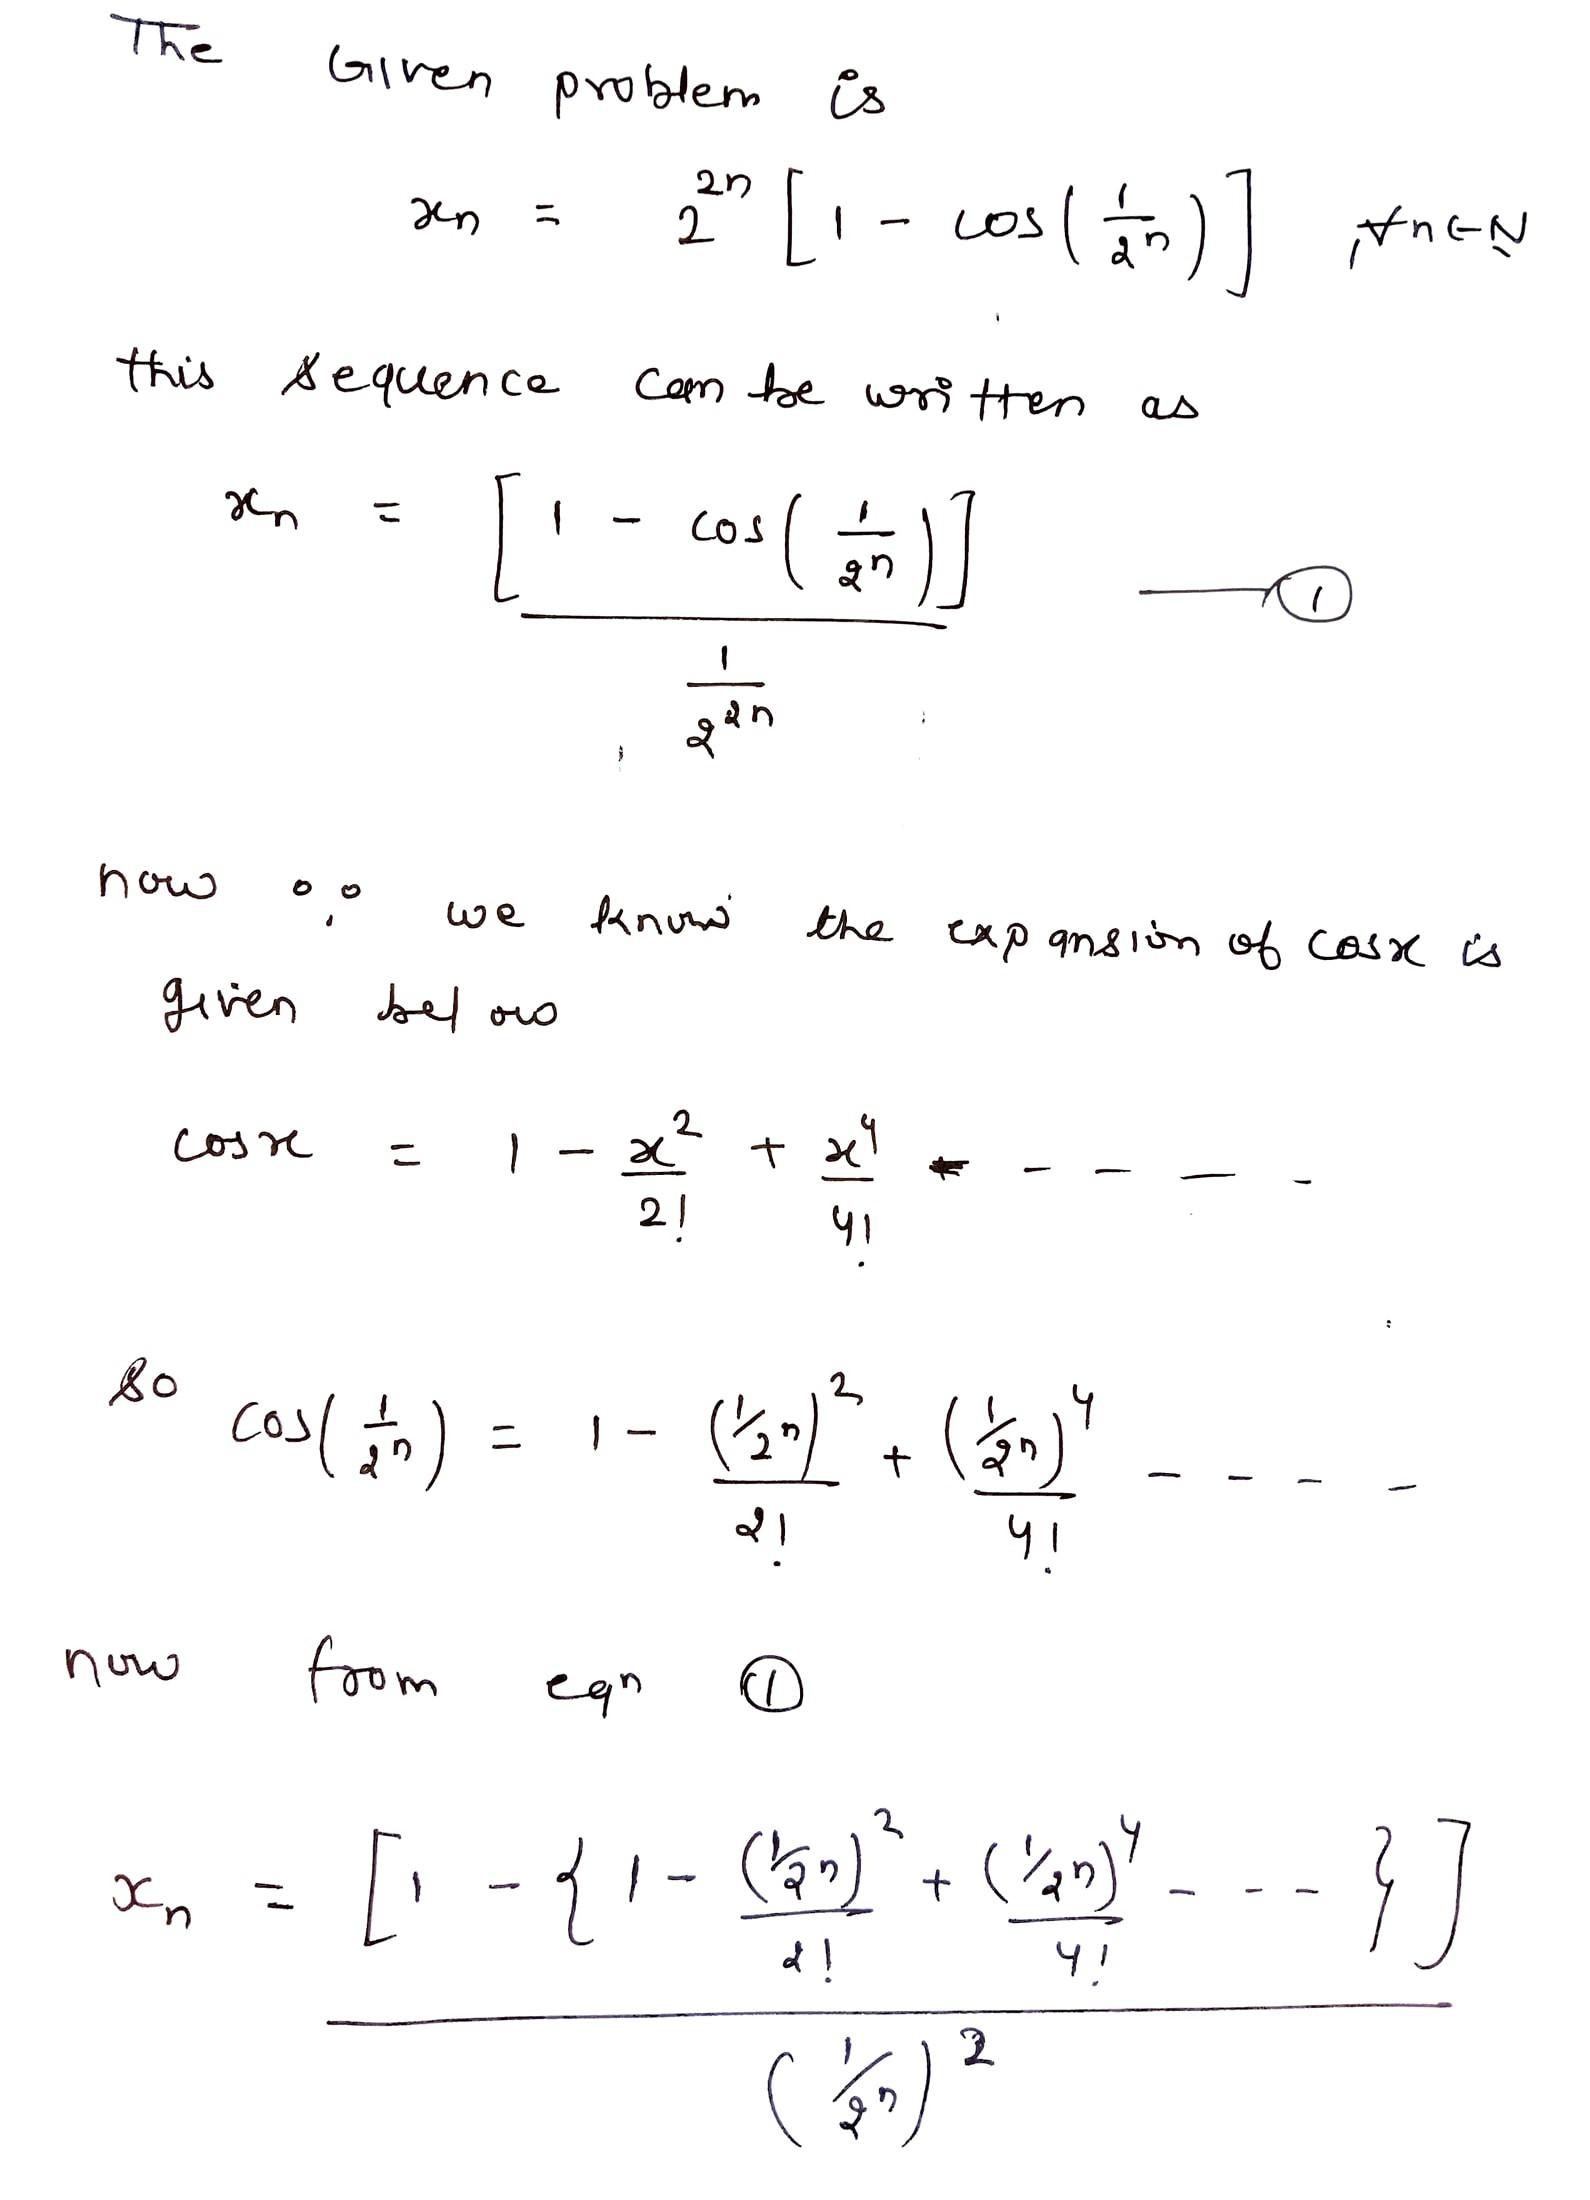 The Given problem is
xn = 2^{2n} [1 - cos(1/2^n)] , ∀n∈N
this sequence can be written as
xn = [1 - cos(1/2^n)] / (1/2^{2n}) —— ①
now ∵ we know the expansion of cosx is
given below
cosx = 1 - x^2/2! + x^4/4! - - - - -
so cos(1/2^n) = 1 - (1/2^n)^2/2! + (1/2^n)^4/4! - - - -
now from eqn ①
xn = [1 - {1 - (1/2^n)^2/2! + (1/2^n)^4/4! - - - - }] / (1/2^n)^2